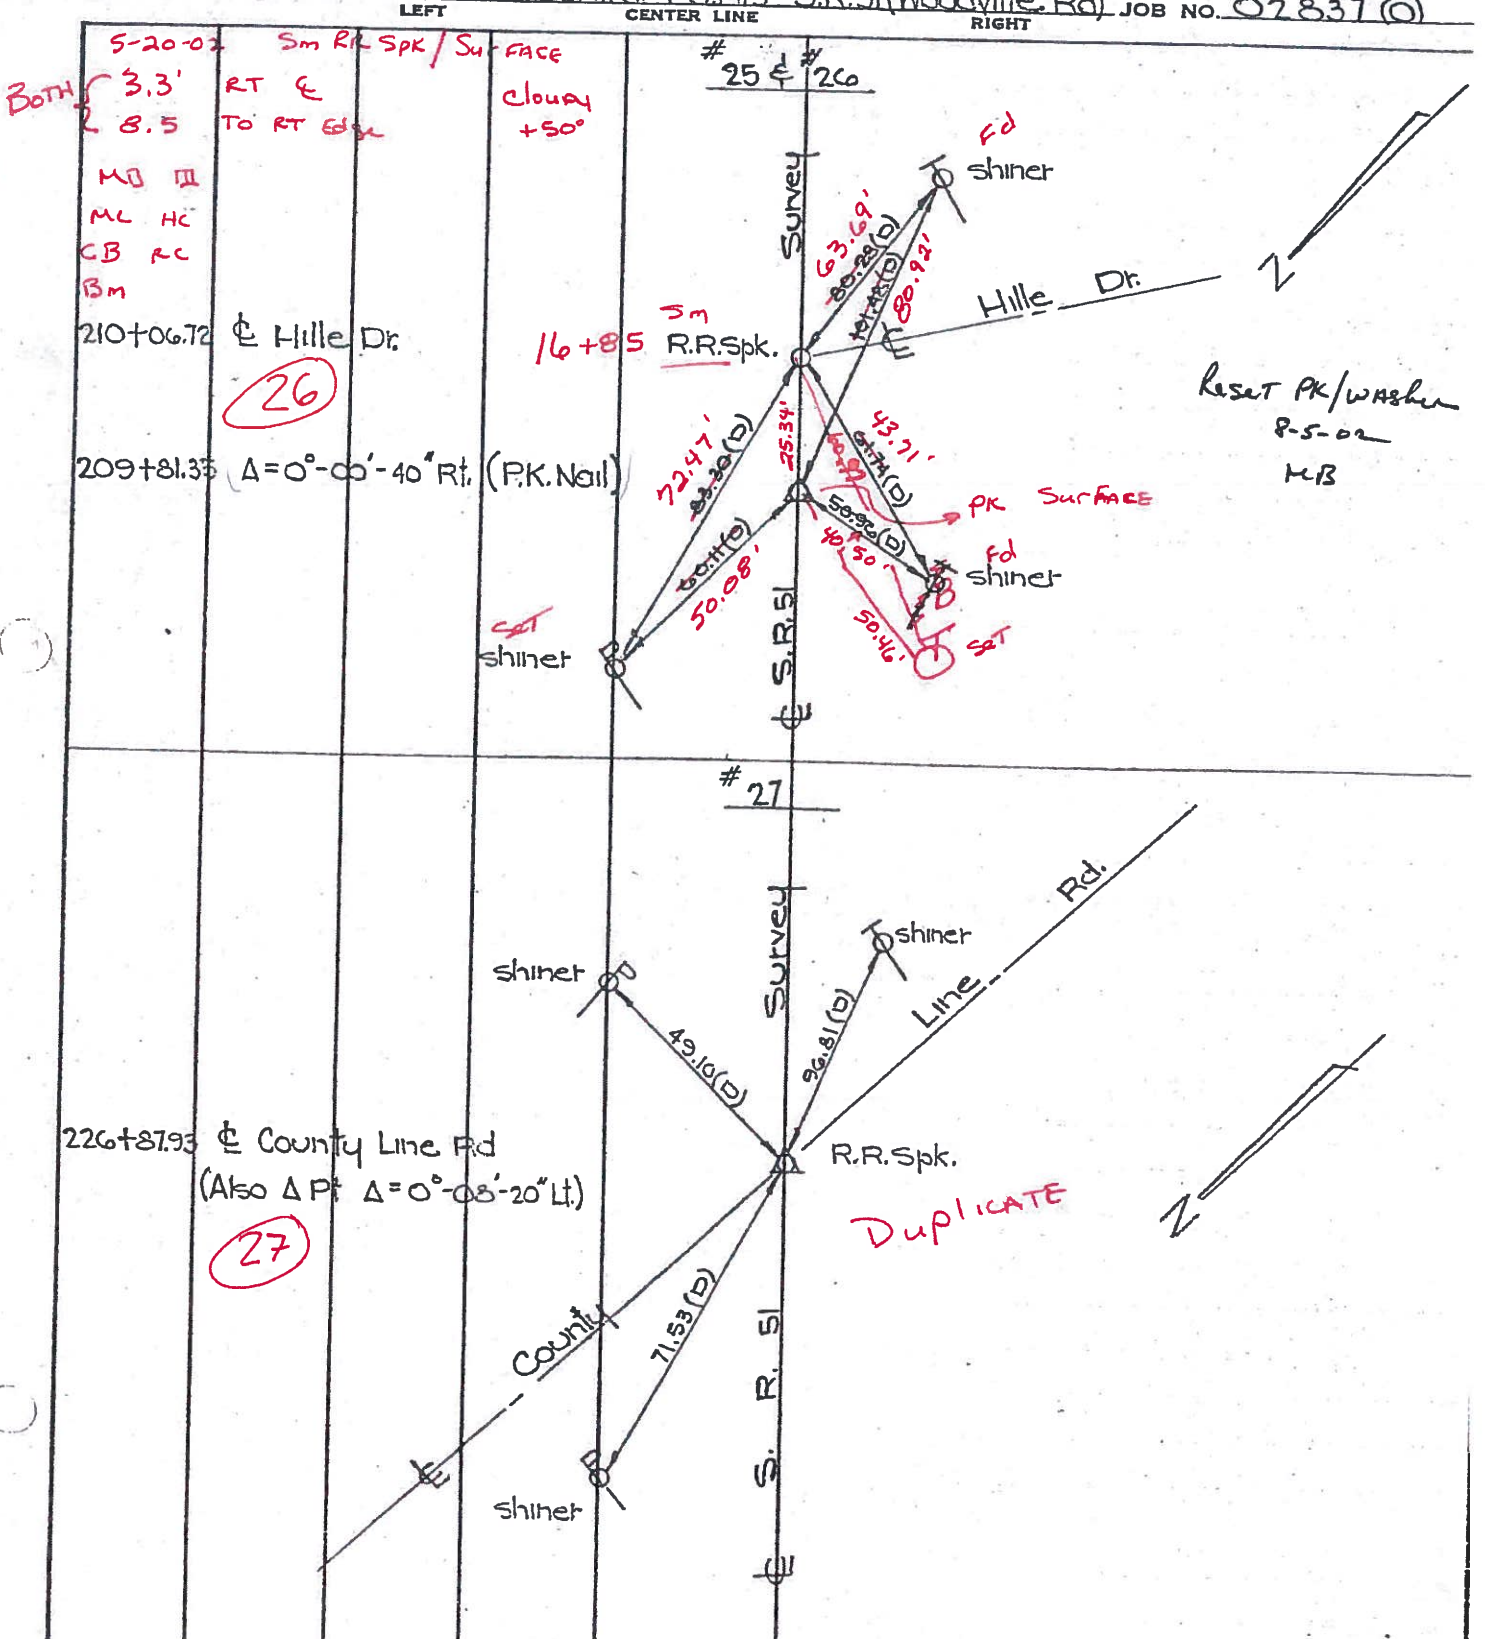 LEFT CENTER LINE RIGHT
S.R. 51 (Woodville Rd) JOB NO. 02837(0)
5-20-02 Sm RR Spk / SurFACE
BOTH { 3.3' RT ℄
8.5 TO RT Edge
cloudy
+50°
MB III
ML HC
CB RC
Bm
# 25 & # 26
Survey
Fd
shiner
63.69'
80.28(D)
101.48(D)
80.92'
℄ Hille Dr.
N
210+06.72 ℄ Hille Dr.
26
16+85 Sm
R.R.Spk.
Reset PK/washer
8-5-02
MB
209+81.33 Δ=0°-00'-40" Rt. (P.K. Nail)
72.47'
83.30(D)
25.34'
43.71'
61.74(D)
60.11(D)
50.08'
50.96(D)
40.50'
PK SurFACE
Fd
shiner
B
50.46'
SeT
SeT
shiner
℄ S.R. 51
# 27
Survey
shiner
shiner
P
49.10(D)
96.81(D)
Line Rd.
226+87.93 ℄ County Line Rd
(Also Δ Pt Δ=0°-03'-20" Lt.)
27
R.R.Spk.
DuplICATE
N
71.53(D)
℄ County
shiner
℄ S. R. 51